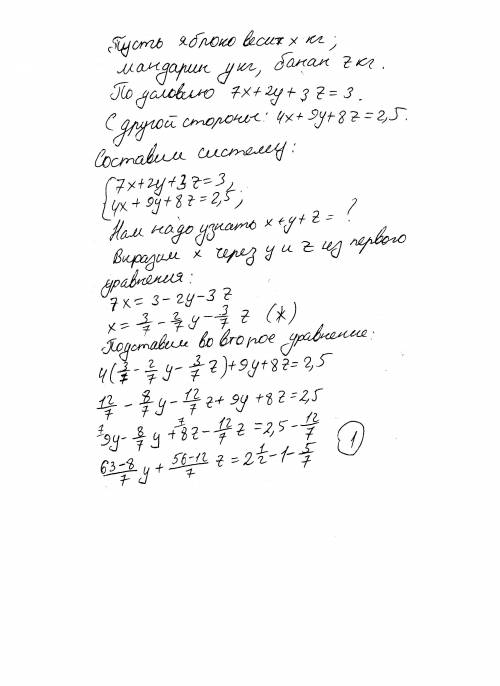 Пусть яблоко весит x кг;
мандарин y кг, банан z кг.
По условию 7x+2y+3z=3.
С другой стороны: 4x+9y+8z=2,5.
Составим систему:
{7x+2y+3z=3,
4x+9y+8z=2,5;
Нам надо узнать x+y+z=?
Виразим x через y и z из первого
уравнения:
7x=3-2y-3z
x=3/7-2/7y-3/7z (*)
Подставим во второе уравнение:
4(3/7-2/7y-3/7z)+9y+8z=2,5
12/7-8/7y-12/7z+9y+8z=2,5
⁷9y-8/7y+⁷8z-12/7z=2,5-12/7
63-8/7y+56-12/7z=2 1/2-1-5/7
1